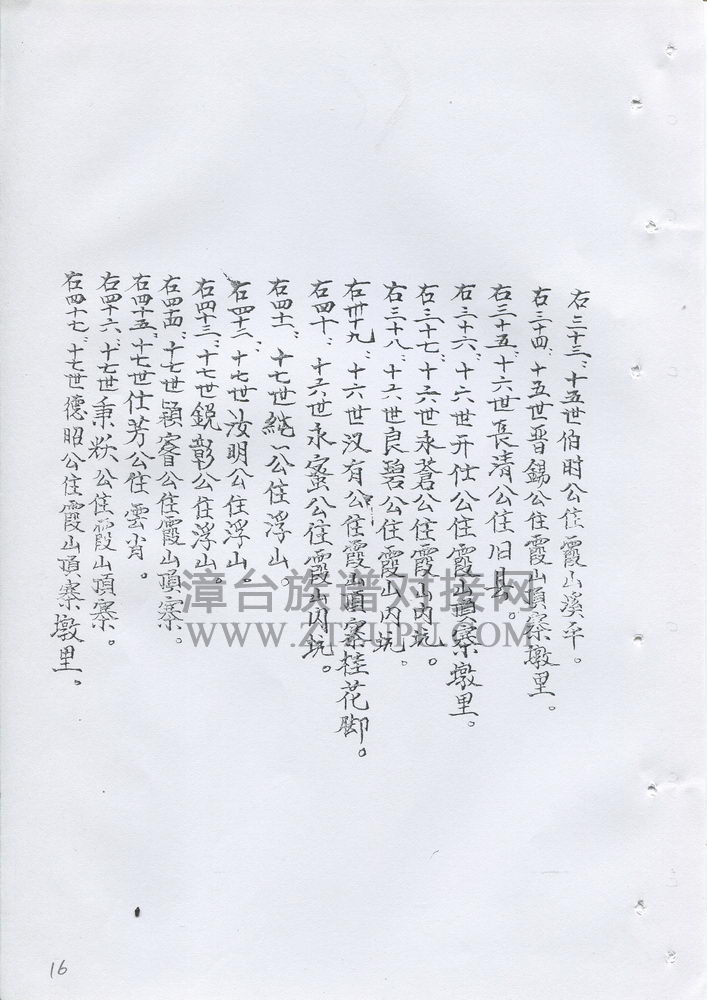 右三十三、十五世伯时公住霞山溪平。
右三十四、十五世晋錫公住霞山頂寨墩里。
右三十五、十六世長清公住旧县。
右三十六、十六世开仕公住霞山頂寨墩里。
右三十七、十六世永蒼公住霞山内坑。
右三十八、十六世良碧公住霞山内坑。
右卅十九、十六世汉有公住霞山頂寨桂花脚。
右四十、十六世永蜜公住霞山内坑。
右四十一、十七世純一公住浮山。
右四十二、十七世汝明公住浮山。
右四十三、十七世鋭彰公住浮山。
右四十四、十七世穎睿公住霞山頂寨。
右四十五、十七世仕芳公住雲霄。
右四十六、十七世秉公住霞山頂寨。
右四十七、十七世德昭公住霞山頂寨墩里。
漳台族谱对接网
WWW.ZTZUPU.COM
16